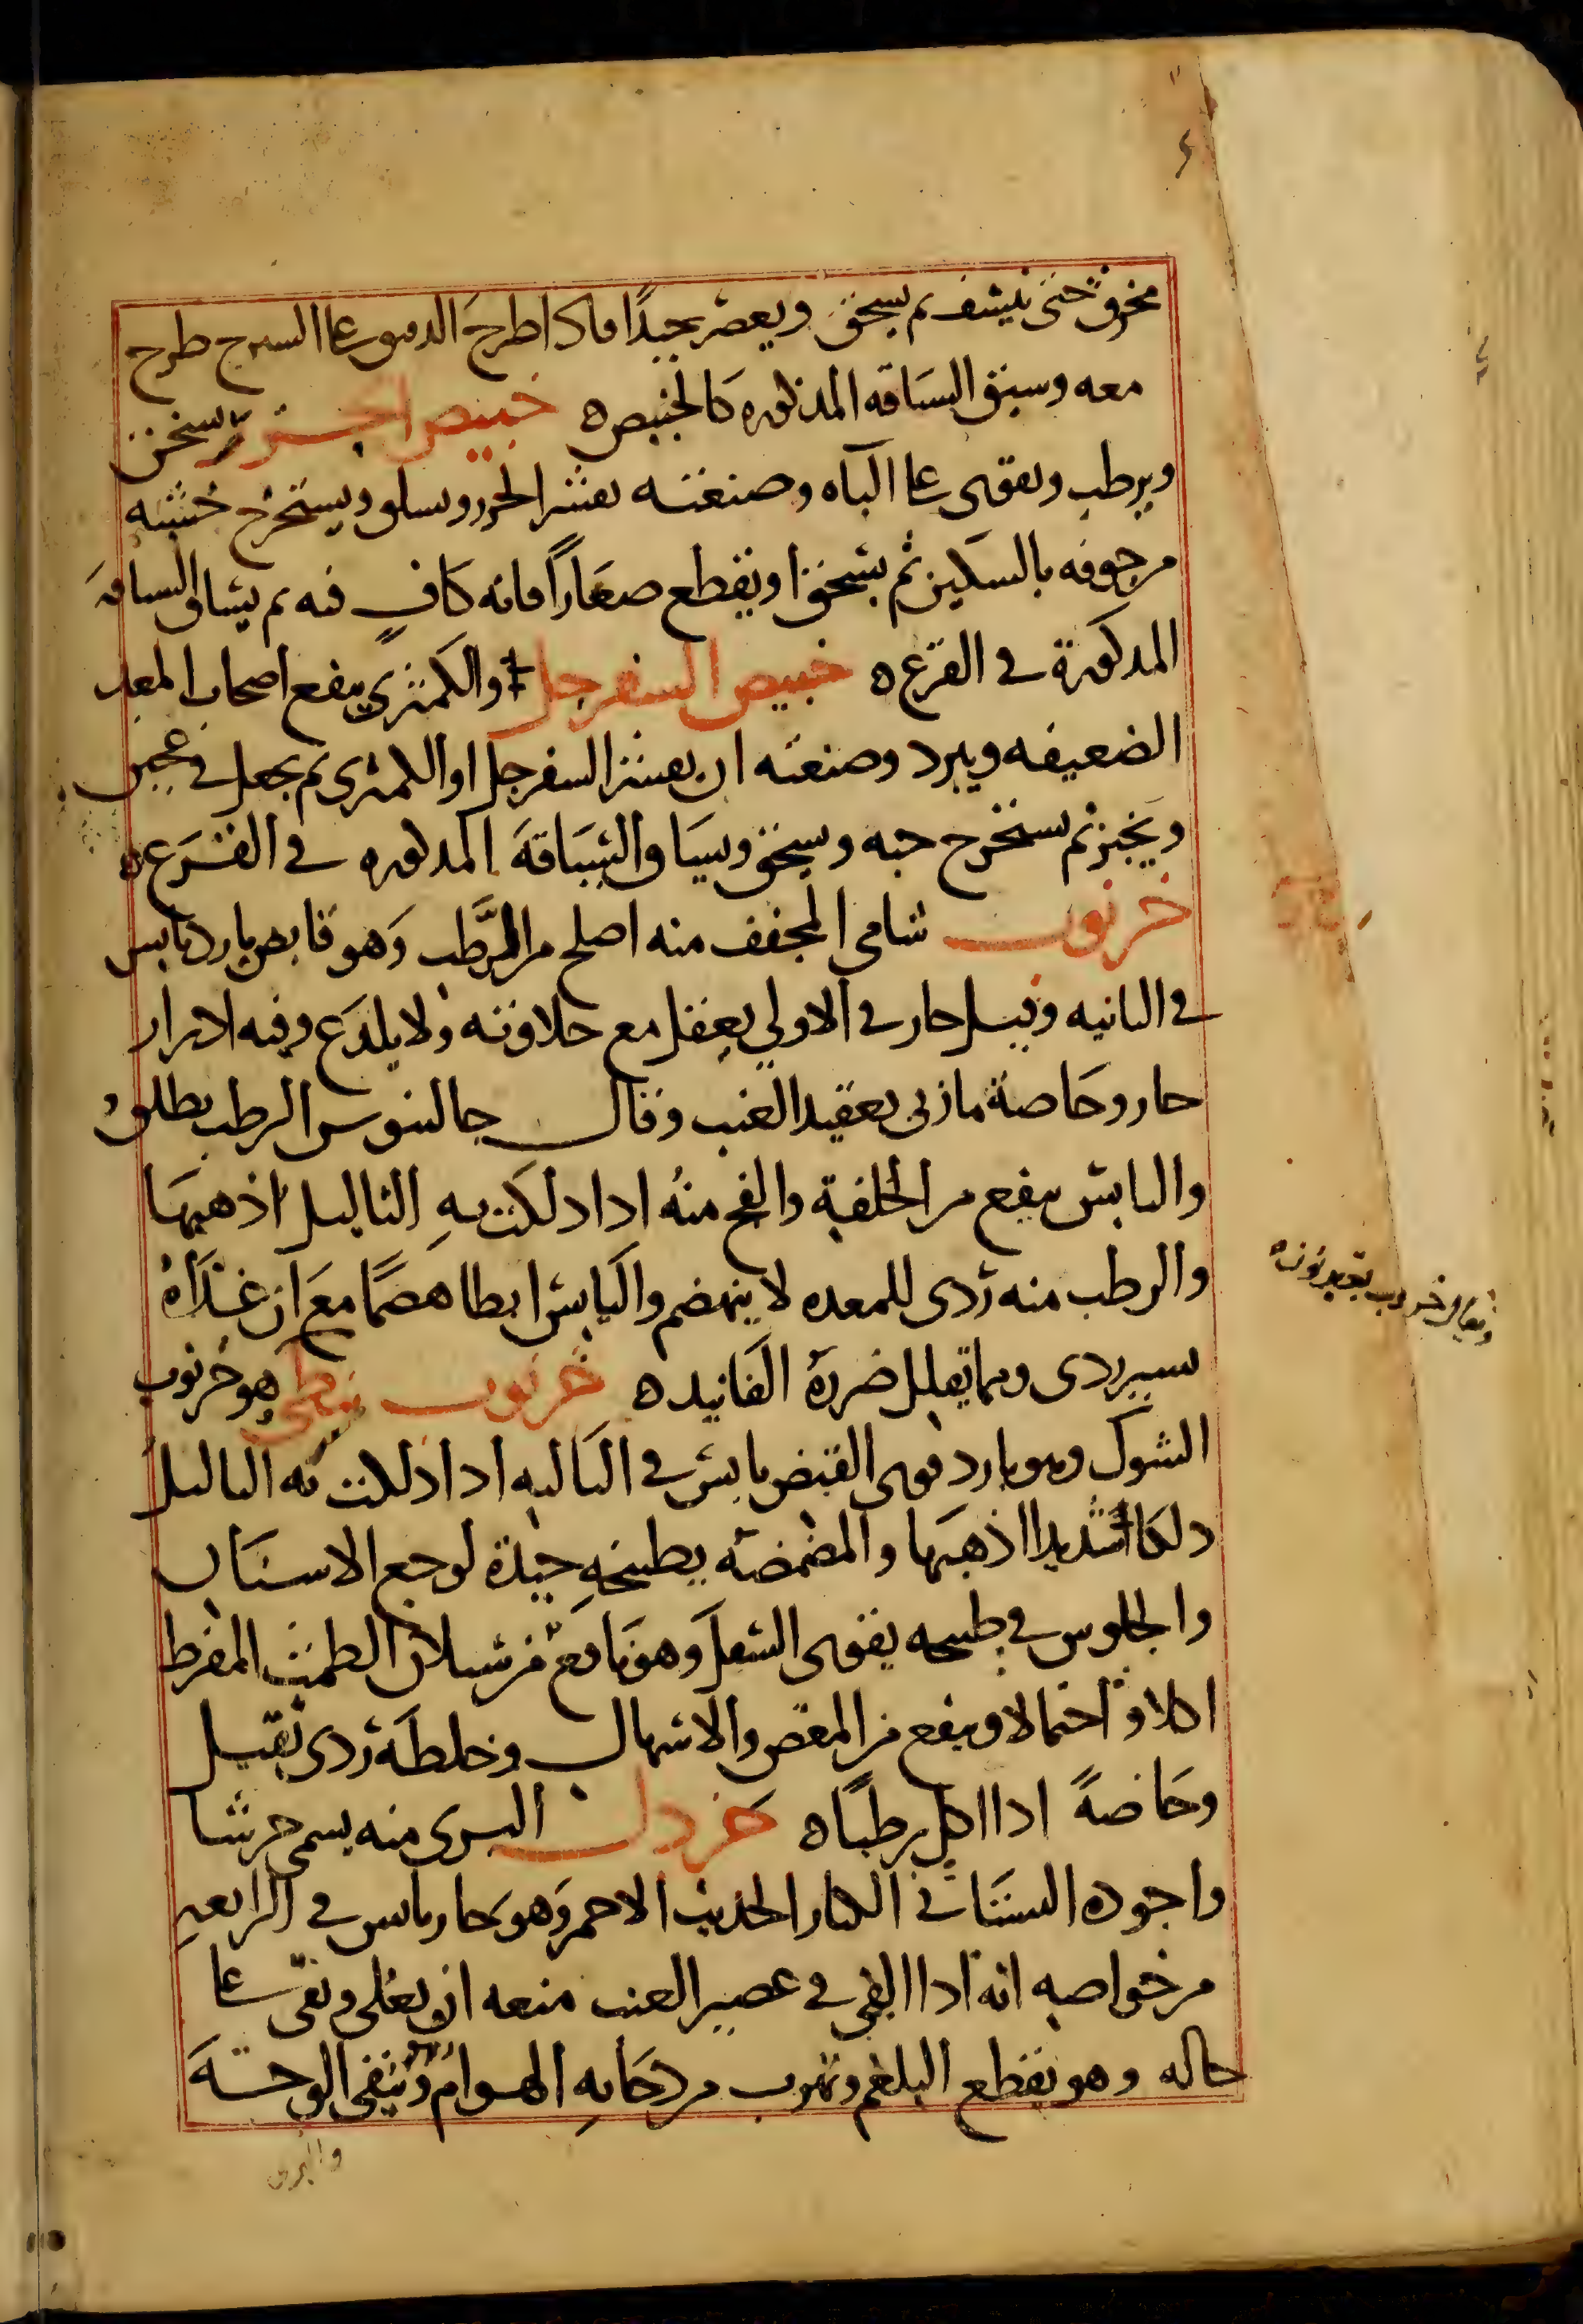 مخرق حتى ينشف ثم يسحق ويعصر جيدا فاذا طرح الدقيق على السيرج طرح
معه وسيق السياقه المذكوره كالخبيص ه خبيص الجزر يسخن
ويرطب ويقوى على الباه وصنعته يقشر الجزر ويسلق ويستخرج خشبته
من جوفه بالسكين ثم يسحق او يقطع صغارا فانه كاف فيه ثم يساق السياقة
المذكورة في القرع ه خبيص السفرجل والكمثرى ينفع اصحاب المعد
الضعيفه ويبرد وصنعته ان يقشر السفرجل او الكمثرى ثم يجعل في عجين
ويخبز ثم يستخرج حبه ويسحق ويساق السياقة المذكوره في القرع ه
خرنوب شامي المجفف منه اصلح من الرطب وهو قابض بارد يابس
في الثانيه وقيل حار في الاولي يعقل مع حلاوته ولا يلدع وفيه ادرار
حار وخاصة ما ربى بعقيد العنب وقال جالينوس الرطب يطلق
واليابس ينفع من الخلفة والفج منه اذا دلكت به الثاليل اذهبها
والرطب منه ردى للمعده لا ينهضم واليابس ابطا هضما مع ان غذاه
يسير ردى ومما يقلل ضرره الفانيد ه خرنوب نبطي هو خرنوب
الشوك وهو بارد قوى القبض يابس في الثانيه اذا دلكت به الثاليل
دلكا شديدا اذهبها والمضمضه بطبيخه جيدة لوجع الاسنان
والجلوس في طبيخه يقوى السفل وهو نافع من سيلان الطمث المفرط
اكلا واحتمالا وينفع من المغص والاسهال وخلطه ردى ثقيل
وخاصة اذا اكل رطبا ه خردل البرى منه يسمى حرشا
واجوده البستاني الكبار الحديث الاحمر وهو حار يابس في الرابعه
من خواصه انه اذا القي في عصير العنب منعه ان يغلى وبقى على
حاله وهو يقطع البلغم وتهرب من دخانه الهوام وينقى الوجه
ويقال خروب